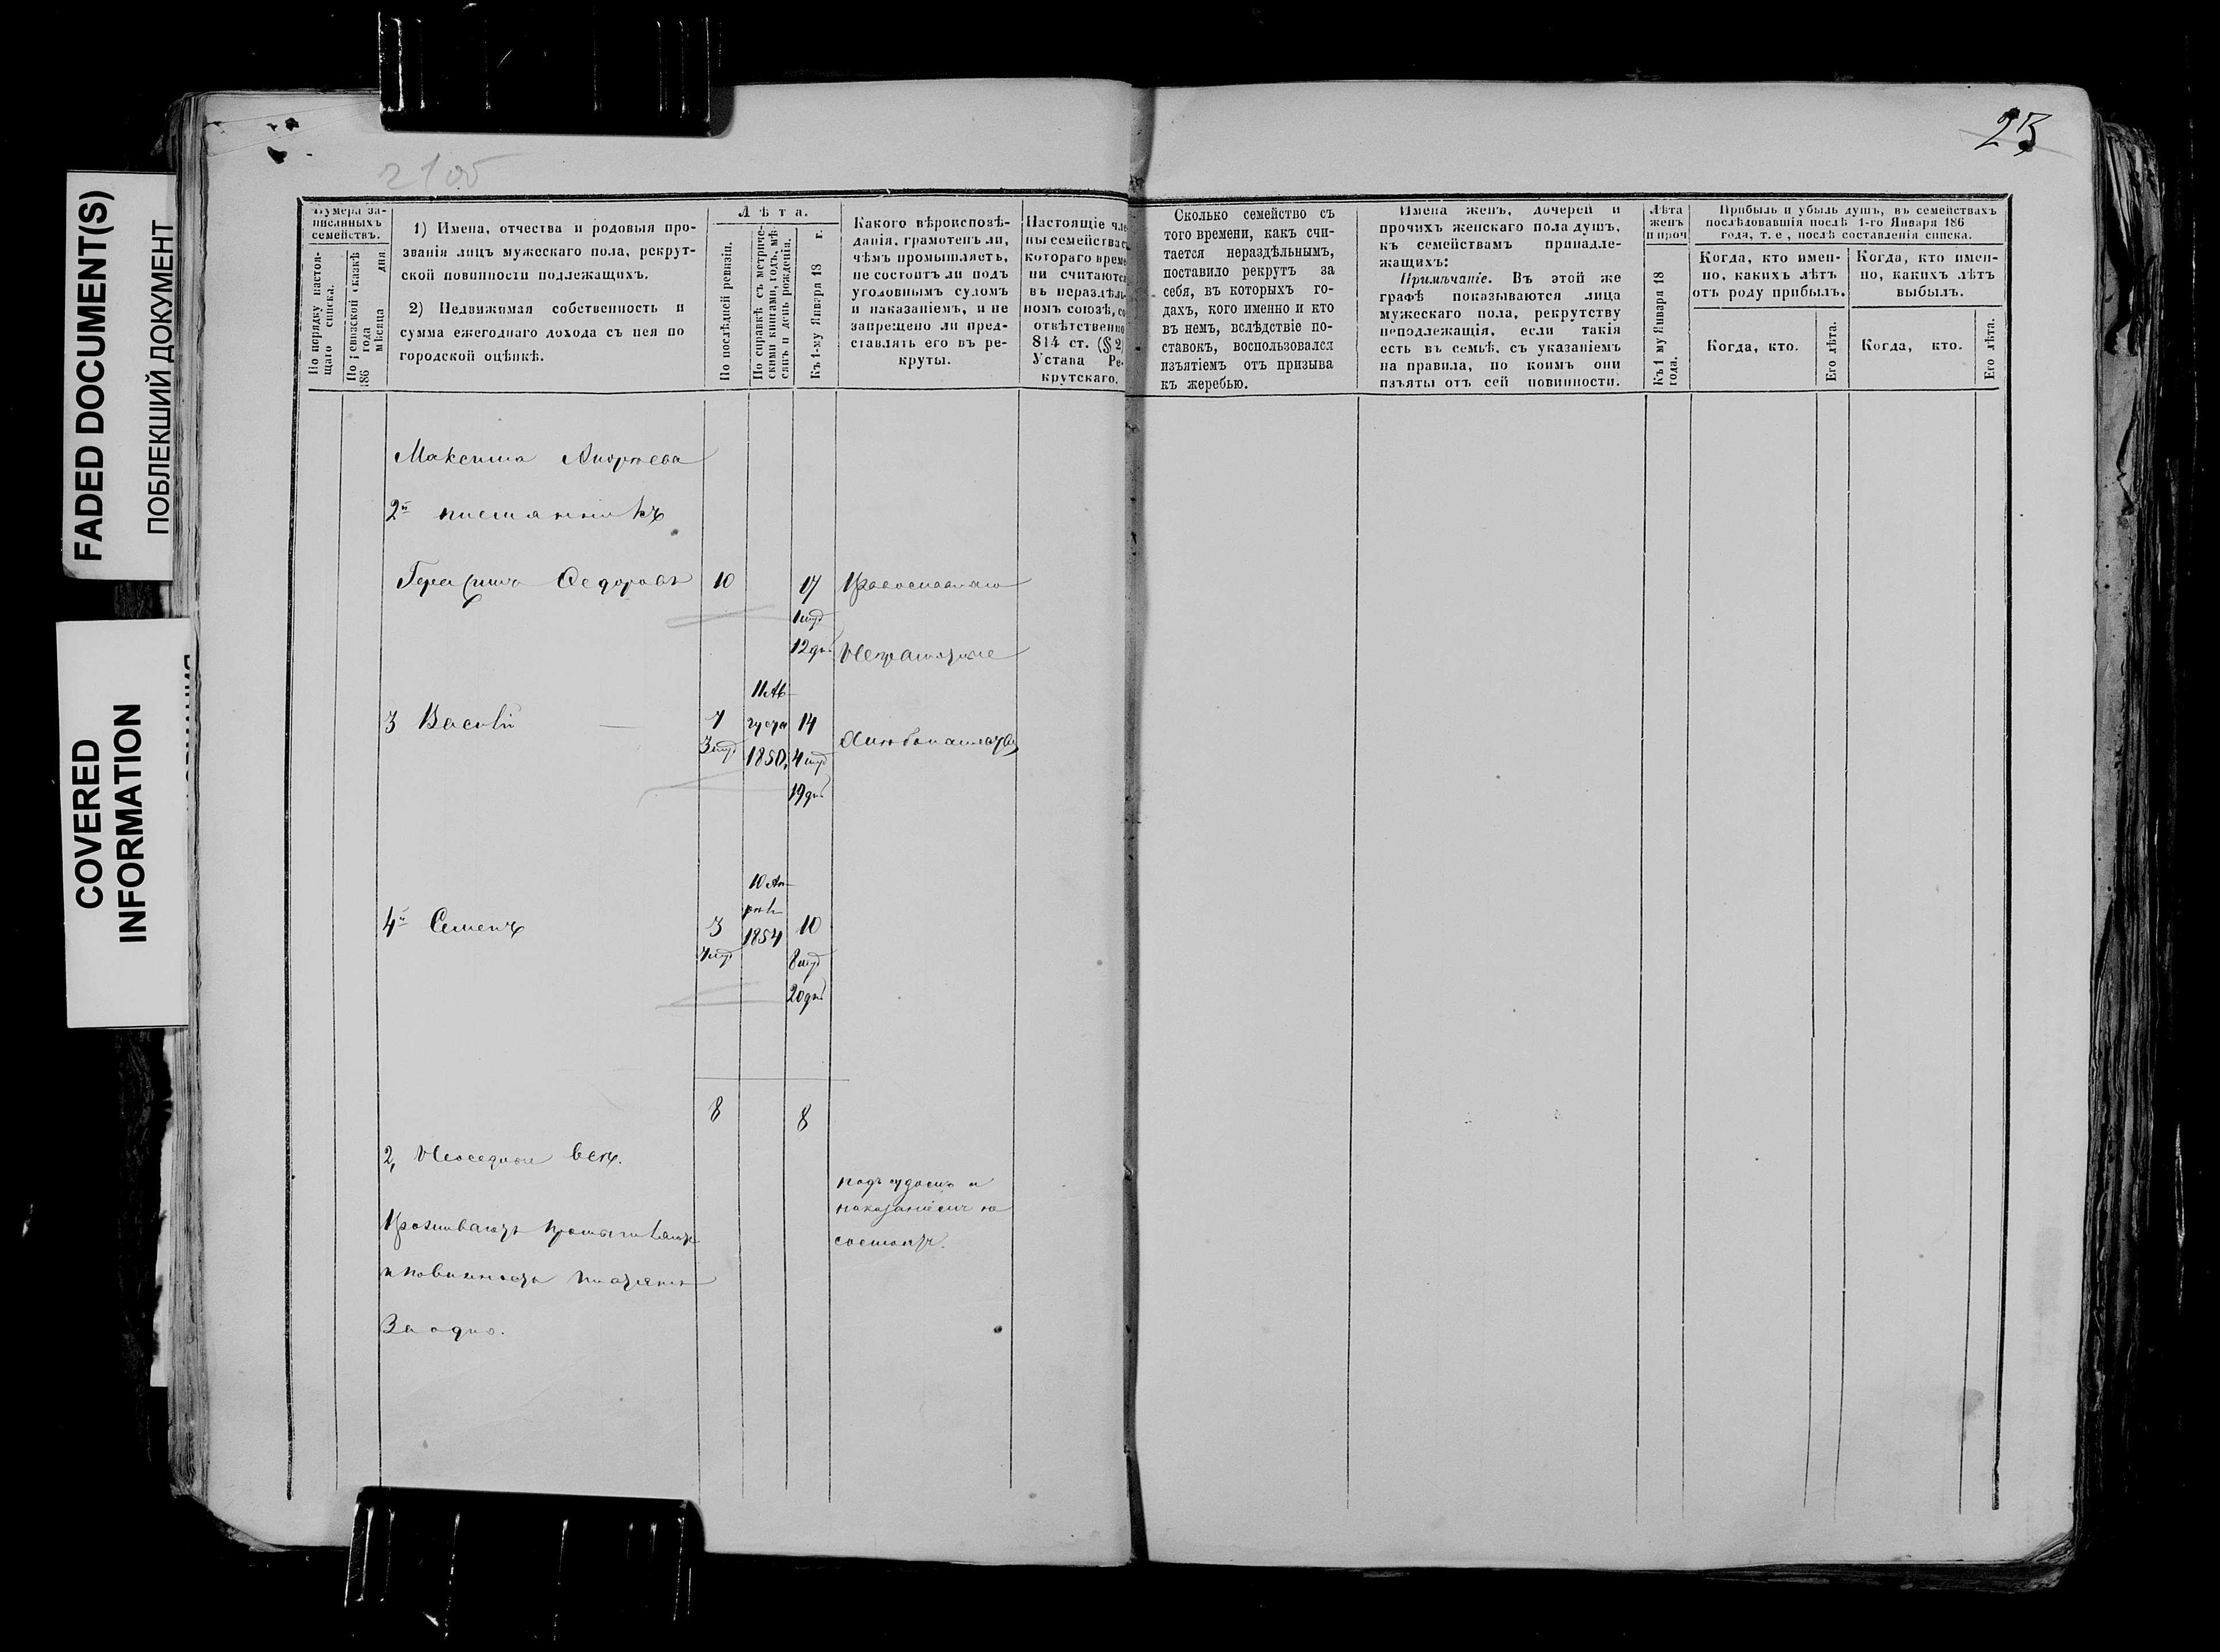 FADED DOCUMENT(S)
ПОБЛЕКШИЙ ДОКУМЕНТ
COVERED
INFORMATION
2100
23
Нумера за-
писанныхъ
семействъ.
По порядку настоя-
щаго списка.
По ревизской сказкѣ
186 года
мѣсяца дня
1) Имена, отчества и родовыя про-
званія лицъ мужескаго пола, рекрут-
ской повинности подлежащихъ.
2) Недвижимая собственность и
сумма ежегоднаго дохода съ нея по
городской оцѣнкѣ.
Лѣта.
По послѣдней ревизіи.
По справкѣ съ метриче-
скими книгами, годъ, мѣ-
сяцъ и день рожденія.
Къ 1-му Января 18 г.
Какого вѣроисповѣ-
данія, грамотенъ ли,
чѣмъ промышляетъ,
не состоитъ ли подъ
уголовнымъ судомъ
и наказаніемъ, и не
запрещено ли пред-
ставлять его въ ре-
круты.
Настоящіе чле-
ны семейства съ
котораго време-
ни считаются
въ нераздѣль-
номъ союзѣ, со-
отвѣтственно
814 ст. (§ 2)
Устава Ре-
крутскаго.
Сколько семейство съ
того времени, какъ счи-
тается нераздѣльнымъ,
поставило рекрутъ за
себя, въ которыхъ го-
дахъ, кого именно и кто
въ немъ, вслѣдствіе по-
ставокъ, воспользовался
изъятіемъ отъ призыва
къ жеребью.
Имена женъ, дочерей и
прочихъ женскаго пола душъ,
къ семействамъ принадле-
жащихъ:
Примѣчаніе. Въ этой же
графѣ показываются лица
мужескаго пола, рекрутству
неподлежащія, если такія
есть въ семьѣ, съ указаніемъ
на правила, по коимъ они
изъяты отъ сей повинности.
Лѣта
женъ
и проч.
Къ 1 му Января 18
года.
Прибыль и убыль душъ, въ семействахъ
послѣдовавшія послѣ 1-го Января 186
года, т. е., послѣ составленія списка.
Когда, кто имен-
но, какихъ лѣтъ
отъ роду прибылъ.
Когда, кто имен-
но, какихъ лѣтъ
выбылъ.
Когда, кто.
Его лѣта.
Когда, кто.
Его лѣта.
Максима Андреева
2й племянникъ
Герасимъ Федоровъ 10 17 Православнаго
1 мѣс
12 дн. Неграмотные
11 Ав-
3 Василій — 7 густа 14
3 мѣс 1850. 4 мѣс
19 дн.
10 Ап-
рѣля
4й Семенъ 3 1854 10
7 мѣс 8 мѣс
20 дн.
8 8
2,
подъ судомъ и
наказаніемъ не
состоятъ.
Проживаютъ промышляютъ
и повинность платятъ
За одно.